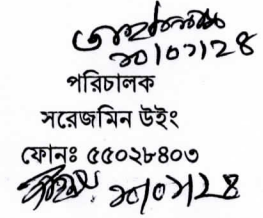 ২০/০১/২৪
পরিচালক
সরেজমিন উইং
ফোনঃ ৫৫০২৮৪০৩
২০/০১/২৪